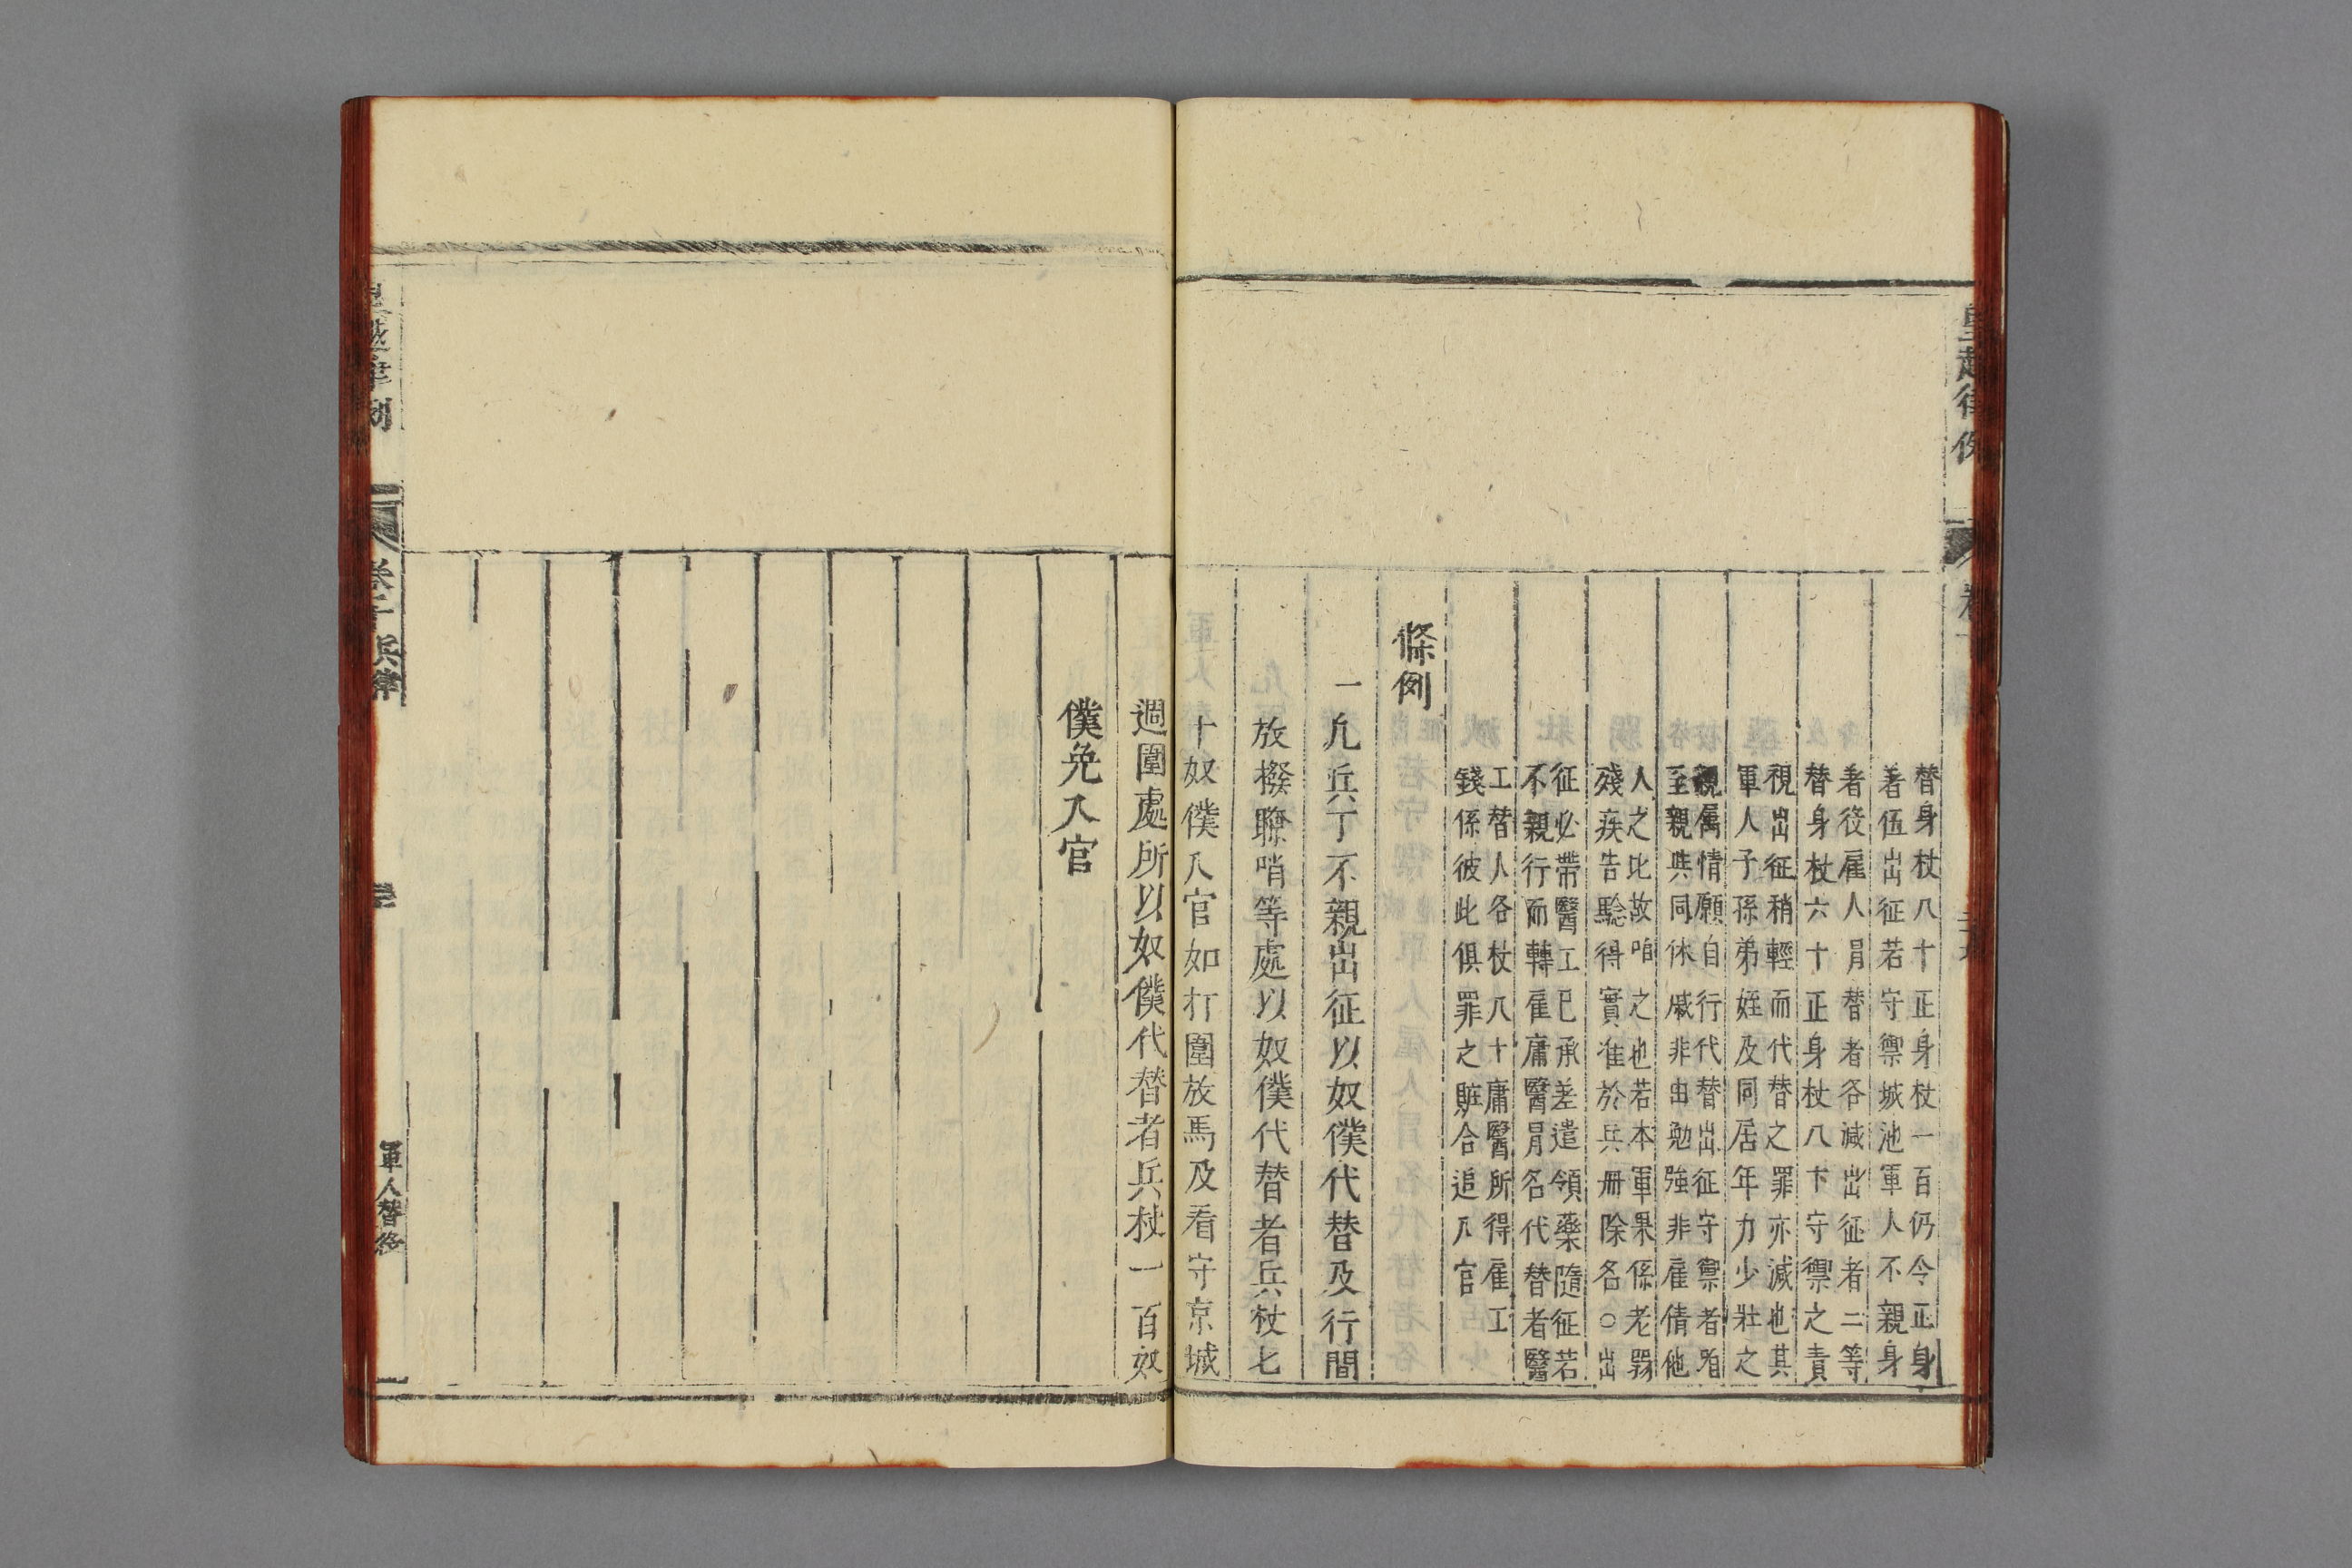 皇越律例
替身杖八十正身杖一百仍令正身
著伍出征若守禦城池軍人不親身
者役雇人冐替者各減出征者二等
替身杖六十正身杖八十守禦之責
視出征稍輕而代替之罪亦減也其
軍人子孫弟姪及同居年力少壯之
親属情願自行代替出征守禦者
至親與同休戚非由勉強非雇倩他
人之比故之也若本軍果係老弱
殘疾告驗得實准於兵冊除名○出
征必帶醫工已承差遣領藥隨征若
不親行而轉雇庸醫冐名代替者醫
工替人各杖八十庸醫所得雇工
錢係彼此俱罪之贓合追入官
條例
一凢兵丁不親出征以奴僕代替及行間
放撥瞭哨等處以奴僕代替者兵杖七
十奴僕入官如打圍放馬及看守京城
週圍處所以奴僕代替者兵杖一百奴
僕免入官
皇越律例
兵律
軍人替役